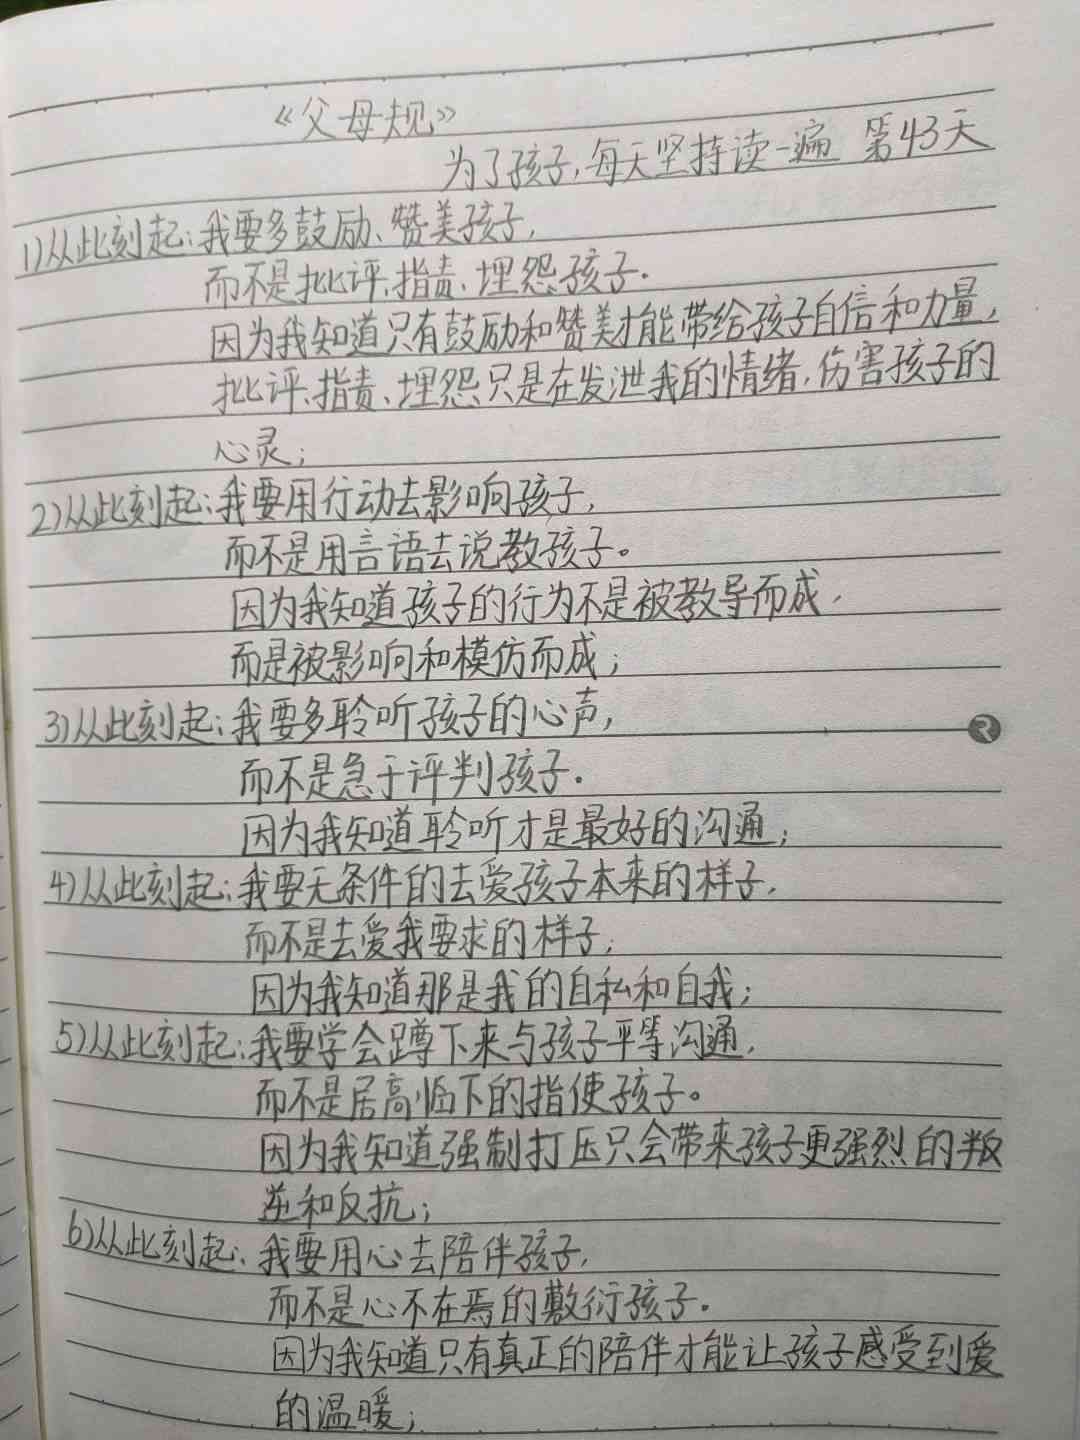 《父母规》
为了孩子,每天坚持读一遍 第43天
1)从此刻起:我要多鼓励、赞美孩子,
而不是批评、指责、埋怨孩子.
因为我知道只有鼓励和赞美才能带给孩子自信和力量,
批评、指责、埋怨只是在发泄我的情绪,伤害孩子的
心灵;
2)从此刻起:我要用行动去影响孩子,
而不是用言语去说教孩子。
因为我知道孩子的行为不是被教导而成,
而是被影响和模仿而成;
3)从此刻起:我要多聆听孩子的心声,
而不是急于评判孩子.
因为我知道聆听才是最好的沟通;
4)从此刻起:我要无条件的去爱孩子本来的样子,
而不是去爱我要求的样子;
因为我知道那是我的自私和自我;
5)从此刻起:我要学会蹲下来与孩子平等沟通,
而不是居高临下的指使孩子。
因为我知道强制打压只会带来孩子更强烈的叛
逆和反抗;
6)从此刻起:我要用心去陪伴孩子,
而不是心不在焉的敷衍孩子.
因为我知道只有真正的陪伴才能让孩子感受到爱
的温暖;